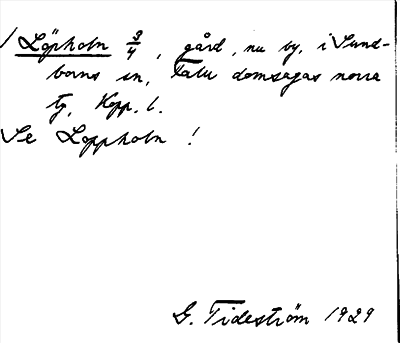 / Löpholn 3/4, gård, nu by, i Sund-
borns sn, Falu domsagas norra
tg, Kopp. l.
Se Loppholn !
G. Tideström 1929